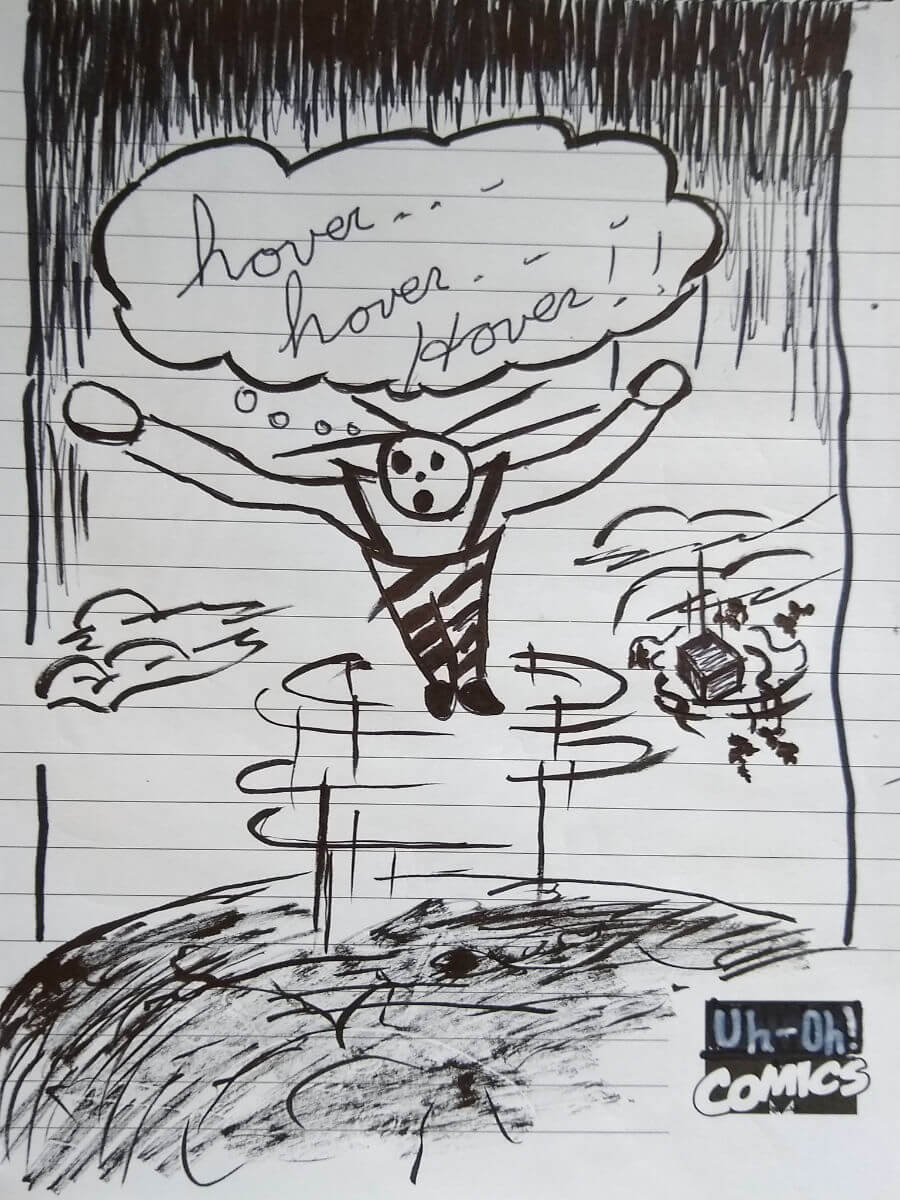 hover...
hover...
Hover!!
Uh-Oh!
COMICS